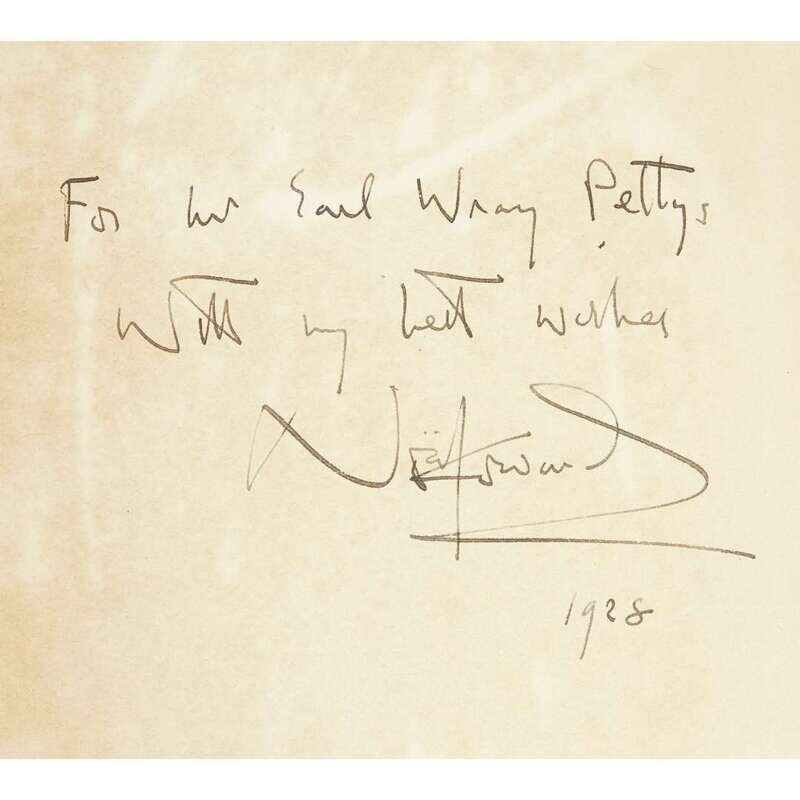 For Mr Earl Wray Pettys
With my best wishes
Noël Coward
1928